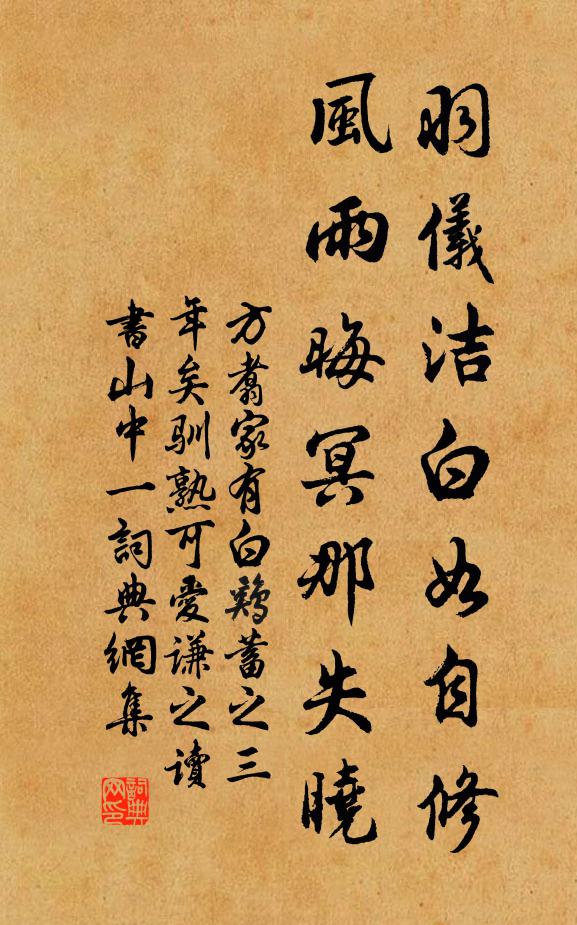 羽儀洁白如自修
風雨晦冥那失曉
方翥家有白鷄蓄之三
年矣馴熟可愛谦之讀
書山中一詞典網集
詞典
网印